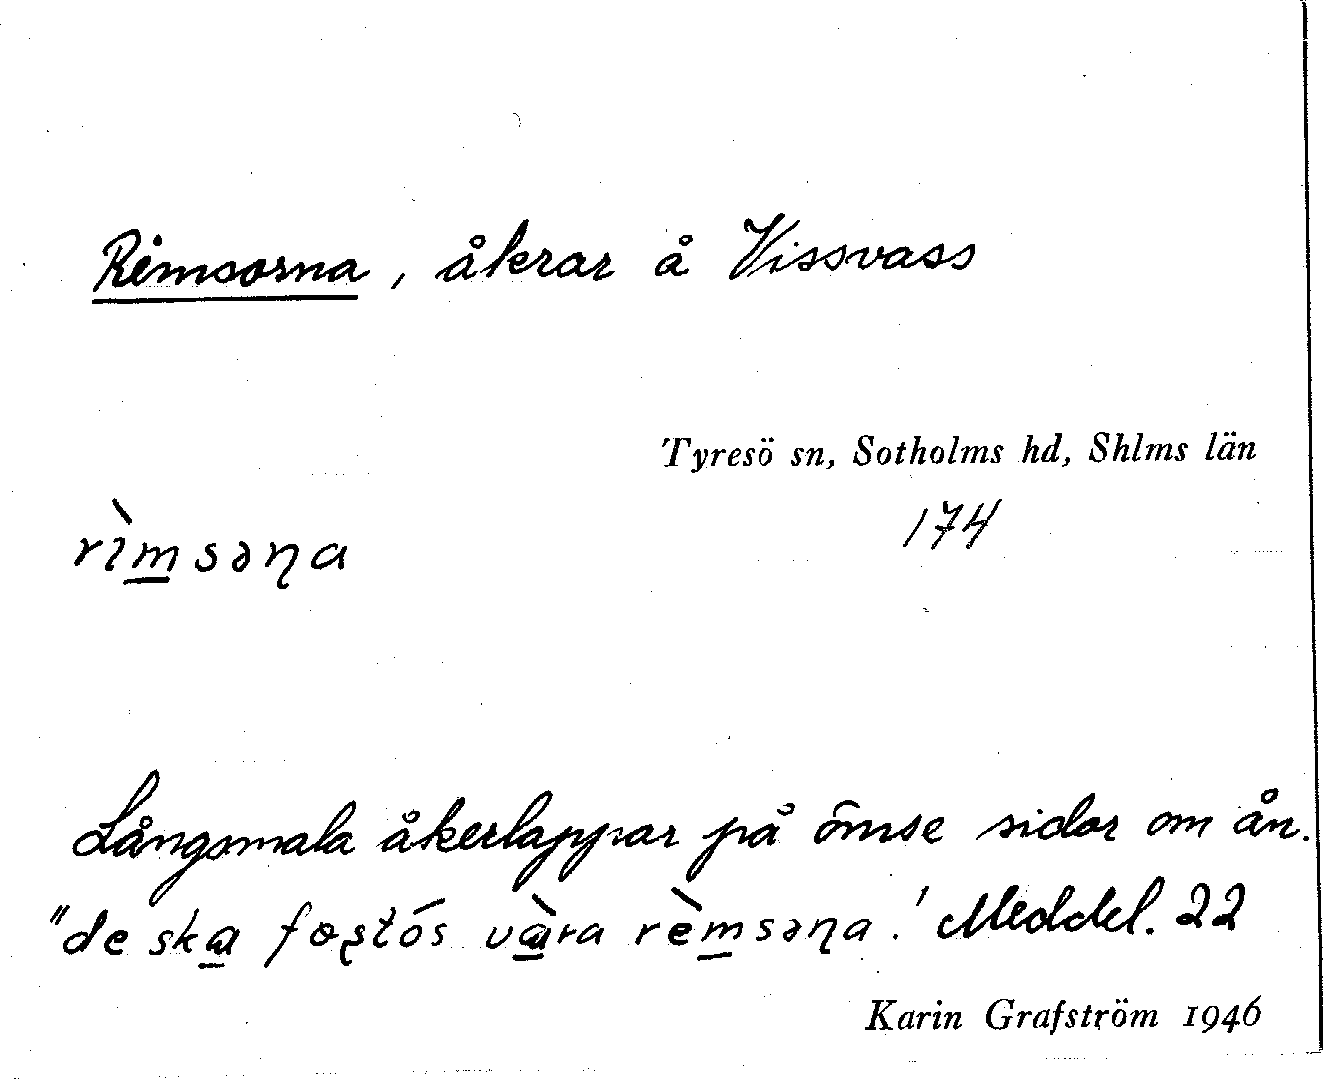 Rimsorna, åkrar å Vissvass
Tyresö sn, Sotholms hd, Shlms län
174
rìmsəɳa
Långsmala åkerlappar på ömse sidor om ån.
"de ska foʂtós vàra rèmsəɳa.' Meddel. 22
Karin Grafström 1946